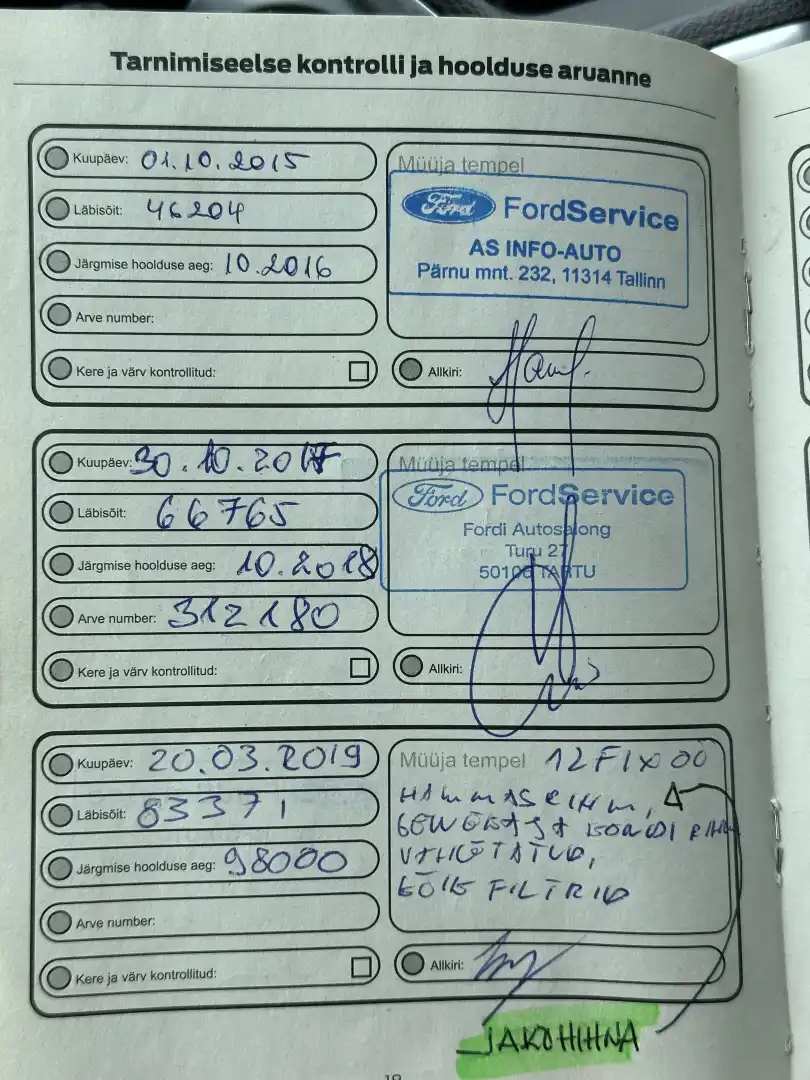 Tarnimiseelse kontrolli ja hoolduse aruanne
Kuupäev: 01.10.2015
Läbisõit: 46204
Järgmise hoolduse aeg: 10.2016
Arve number:
Kere ja värv kontrollitud:
Müüja tempel
Ford FordService
AS INFO-AUTO
Pärnu mnt. 232, 11314 Tallinn
Allkiri:
Kuupäev: 30.10.2017
Läbisõit: 66765
Järgmise hoolduse aeg: 10.2018
Arve number: 312180
Kere ja värv kontrollitud:
Müüja tempel
Ford FordService
Fordi Autosalong
Turu 27
50106 TARTU
Allkiri:
Kuupäev: 20.03.2019
Läbisõit: 83371
Järgmise hoolduse aeg: 98000
Arve number:
Kere ja värv kontrollitud:
Müüja tempel 12FIX00
HAMMASRIHM,
VAHETATUD,
KÕIK FILTRID
Allkiri:
JAKOHIHNA